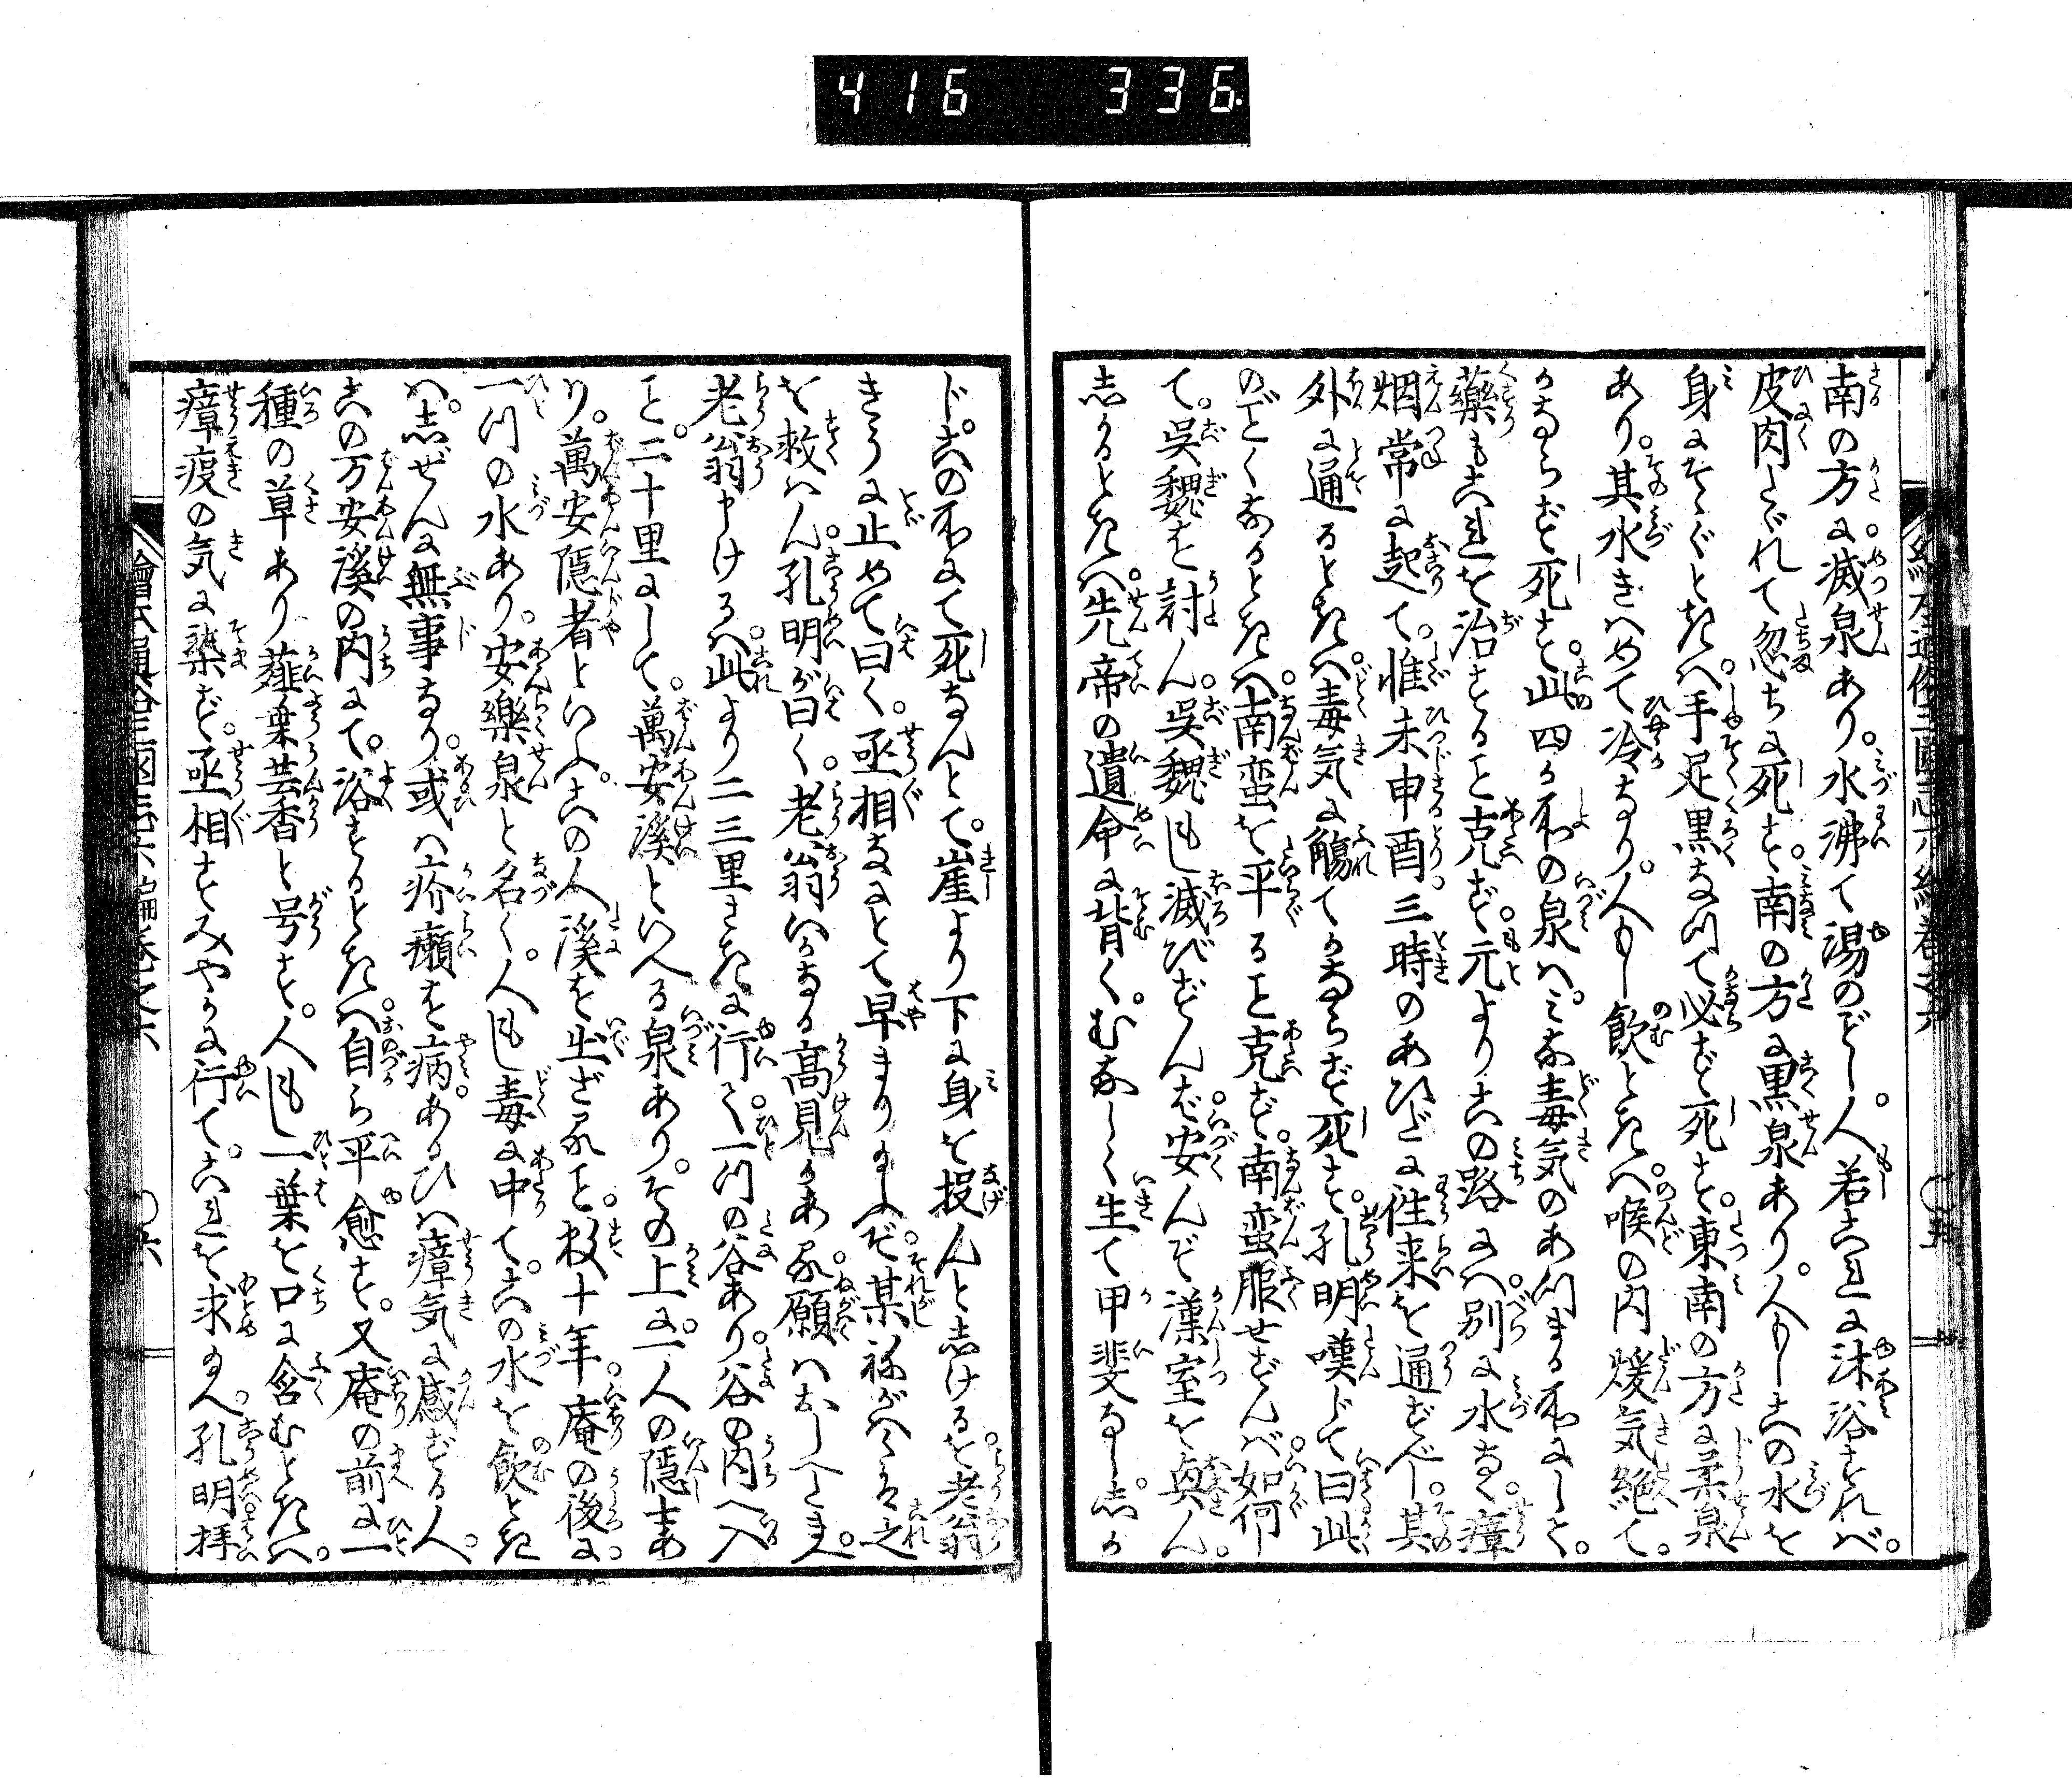 416 336
南の方に。滅泉あり。水沸て湯のごとし。人若これに沐浴すれバ。
皮肉たゞれて忽ちに死す。南の方に黒泉あり。人もしこの水を
身にそゝぐときハ。手足黒なつて必ず死す。東南の方に柔泉
あり。其水きハめて冷なり。人もし飲ときハ。喉の内煖気絶て。
かならず死す。此四か所の泉ハ。ミな毒気のあつまる所にして。
藥もこれを治すること克ず。元よりこの路にハ。別に水なく。瘴
烟常に起て。惟未申酉。三時のあひだに往来を通ずべし。其
外に通るときハ。毒気に觸てかならず死す。孔明嘆じて曰此
のごとくなるときハ。南蛮を平ること克ず。南蛮服せずんバ。如何
て。呉魏を討ん。呉魏もし滅びずんバ。安んぞ漢室を興ん。
志かるときハ。先帝の遺命に背く。むなしく生て甲斐なし。志か
じ。此の所にて死なんとて。崖より下に身を投んと志けるを。老翁
きうに止めて曰く。丞相なにとて早まり給ふぞ。某ねがハくハ之
を救ハん。孔明が曰く。老翁いかなる高見かある。願ハおしへ給へ。
老翁申けるハ。此より二三里さきに行て。一つの谷あり。谷の内へ入
こと。二十里にして。萬安溪といへる泉あり。その上に。一人の隱士あ
り。萬安隱者といふ。この人溪を出ざること。数十年。庵の後に。
一つの水あり。安樂泉と名く。人もし毒に中て。この水を飲とき
ハ。志ぜんに無事なり。或ハ疥癩を病。あるひハ瘴気に感ずる人。
この万安溪の内にて。浴するときハ。自ら平愈す。又庵の前に一
種の草あり薤葉芸香と号す。人もし一葉を口に含むときハ。
瘴疫の気に染ず。丞相すみやかに行て。これを求め給へ。孔明拝